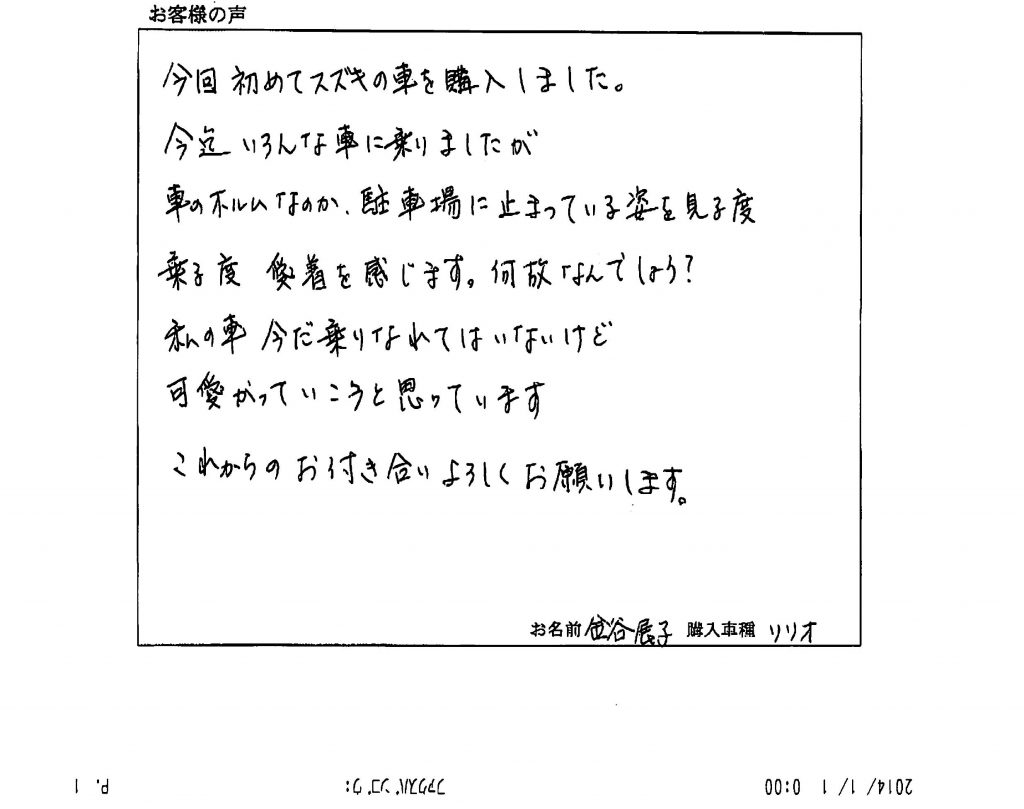 お客様の声
今回 初めてスズキの車を購入しました。
今迄 いろんな車に乗りましたが
車のホルムなのか、駐車場に止まっている姿を見る度
乗る度 愛着を感じます。何故なんでしょう?
私の車 今だ乗りなれてはいないけど
可愛がっていこうと思っています
これからの お付き合い よろしく お願いします。
お名前 谷展子 購入車種 リリオ
2014/ 1/ 1 0:00 ファクスバンゴウ: P. 1